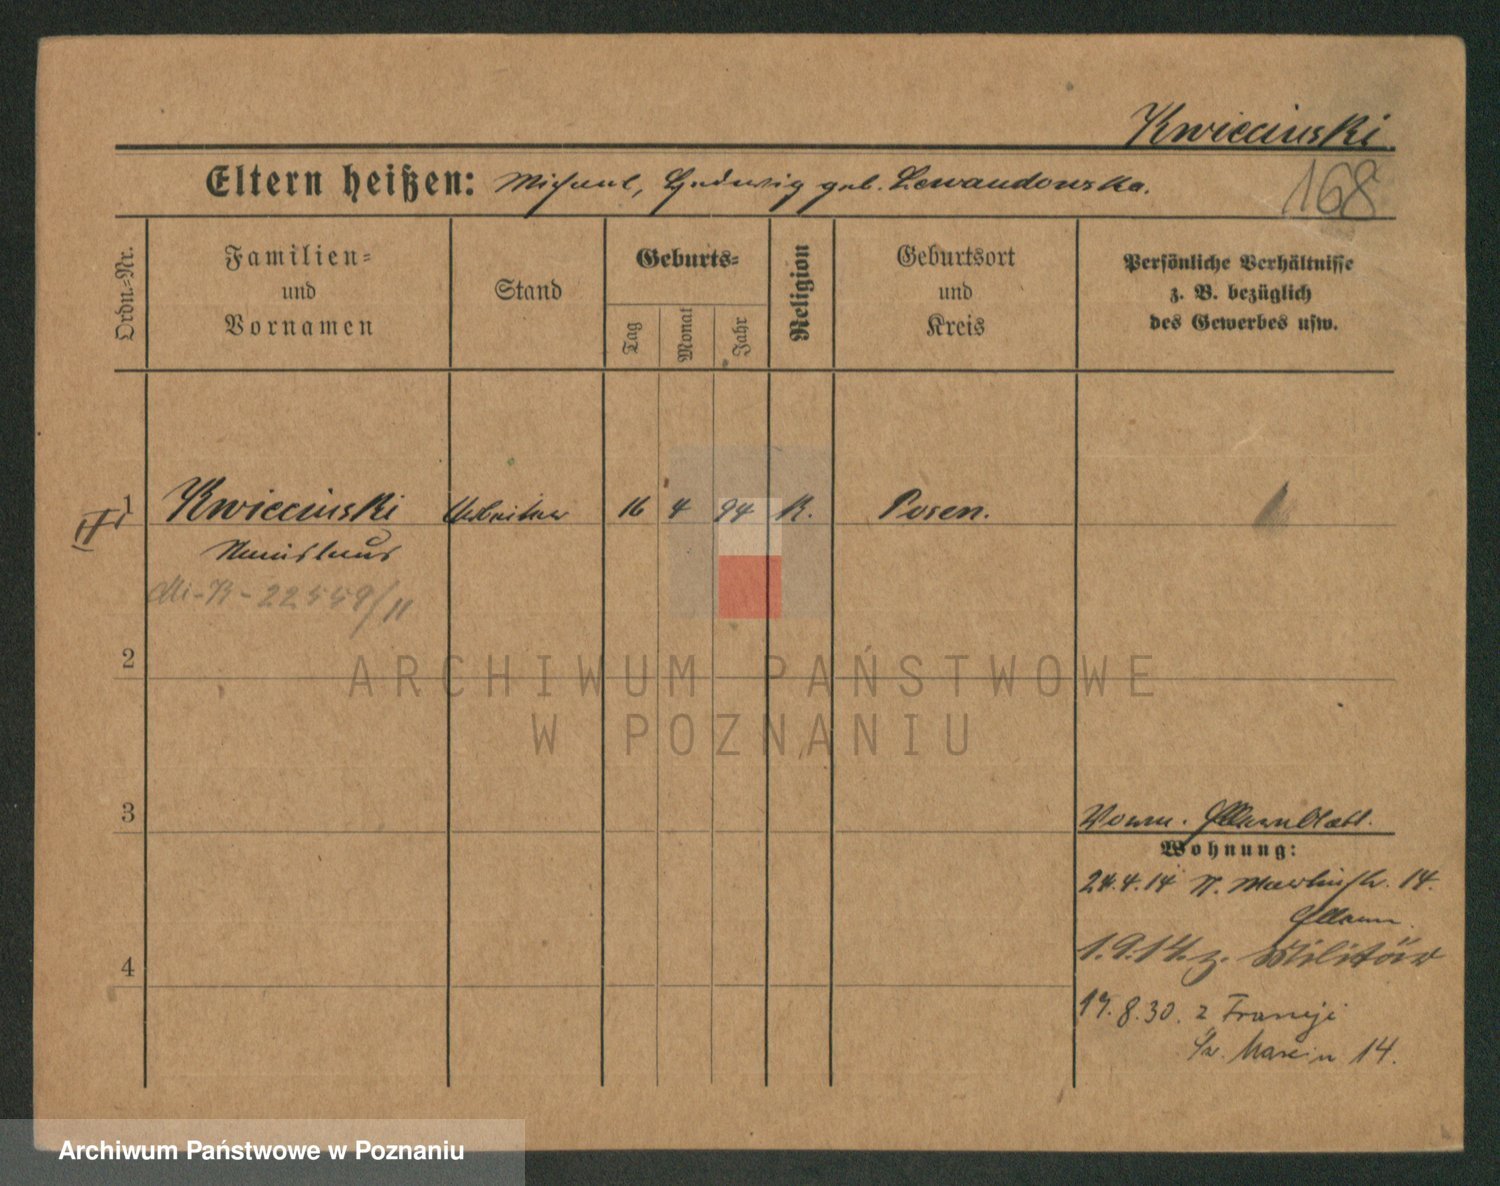 Kwiecinski.
Eltern heißen: Michael, Hedwig geb. Lewandowska.
168
Ordn.-Nr.
Familien-
und
Vornamen
Stand
Geburts-
Tag
Monat
Jahr
Religion
Geburtsort
und
Kreis
Persönliche Verhältnisse
z. B. bezüglich
des Gewerbes usw.
1
Kwiecinski Arbeiter 16 4 94 K. Posen.
Stanislaus
22559/11
2
3
4
Wohnung:
24.4.14 St. Martinstr. 14.
1.9.14. z. Militär
17.8.30. z Francji
Św. Marcin 14.
ARCHIWUM PAŃSTWOWE
W POZNANIU
Archiwum Państwowe w Poznaniu